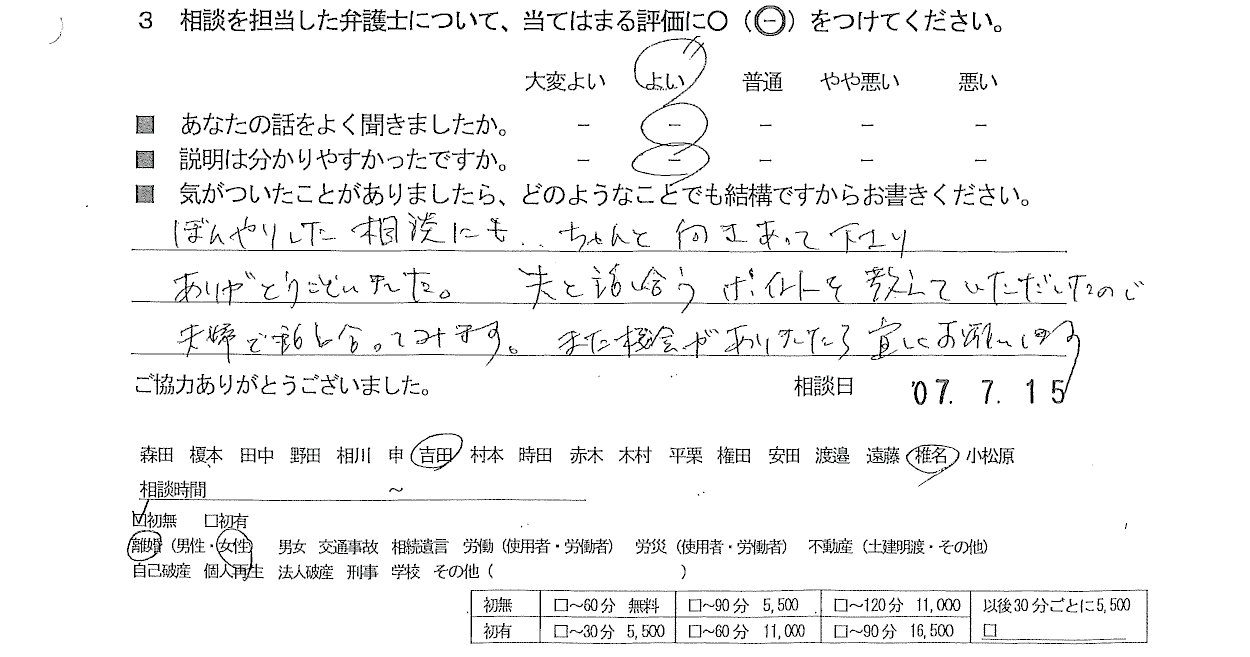 3 相談を担当した弁護士について、当てはまる評価に○(㊀)をつけてください。
大変よい よい 普通 やや悪い 悪い
■ あなたの話をよく聞きましたか。 － － － － －
■ 説明は分かりやすかったですか。 － － － － －
■ 気がついたことがありましたら、どのようなことでも結構ですからお書きください。
ぼんやりした相談にも、ちゃんと向きあって下さり
ありがとうございました。 夫と話し合うポイントを教えていただだしたので
夫婦で話し合ってみます。また機会がありましたら宜しくお願いします
ご協力ありがとうございました。 相談日 '07. 7. 15
森田 榎本 田中 野田 相川 申 吉田 村本 時田 赤木 木村 平栗 権田 安田 渡邉 遠藤 椎名 小松原
相談時間 ～
☑初無 □初有
離婚(男性・女性) 男女 交通事故 相続遺言 労働(使用者・労働者) 労災(使用者・労働者) 不動産(土建明渡・その他)
自己破産 個人再生 法人破産 刑事 学校 その他( )
初無 □～60分 無料 □～90分 5,500 □～120分 11,000 以後30分ごとに5,500
初有 □～30分 5,500 □～60分 11,000 □～90分 16,500 □